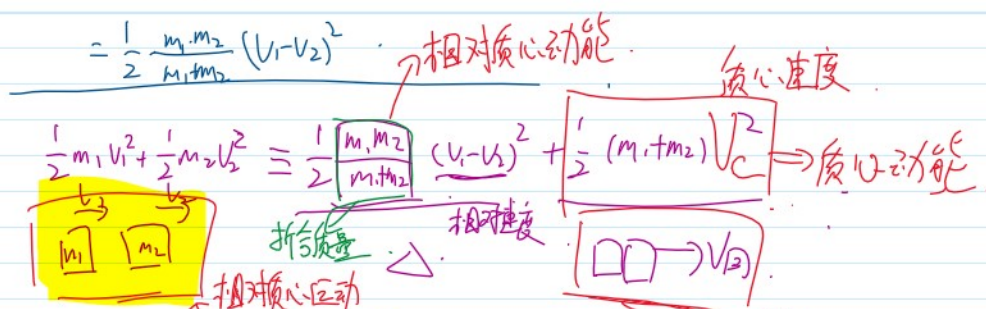 = 1/2 m₁·m₂/(m₁+m₂) (V₁-V₂)²
相对质心动能
质心速度
1/2 m₁V₁² + 1/2 m₂V₂² ≡ 1/2 m₁m₂/(m₁+m₂) (V₁-V₂)² + 1/2 (m₁+m₂) V_C² ⇒ 质心动能
折合质量
相对速度
m₁ m₂
相对质心运动